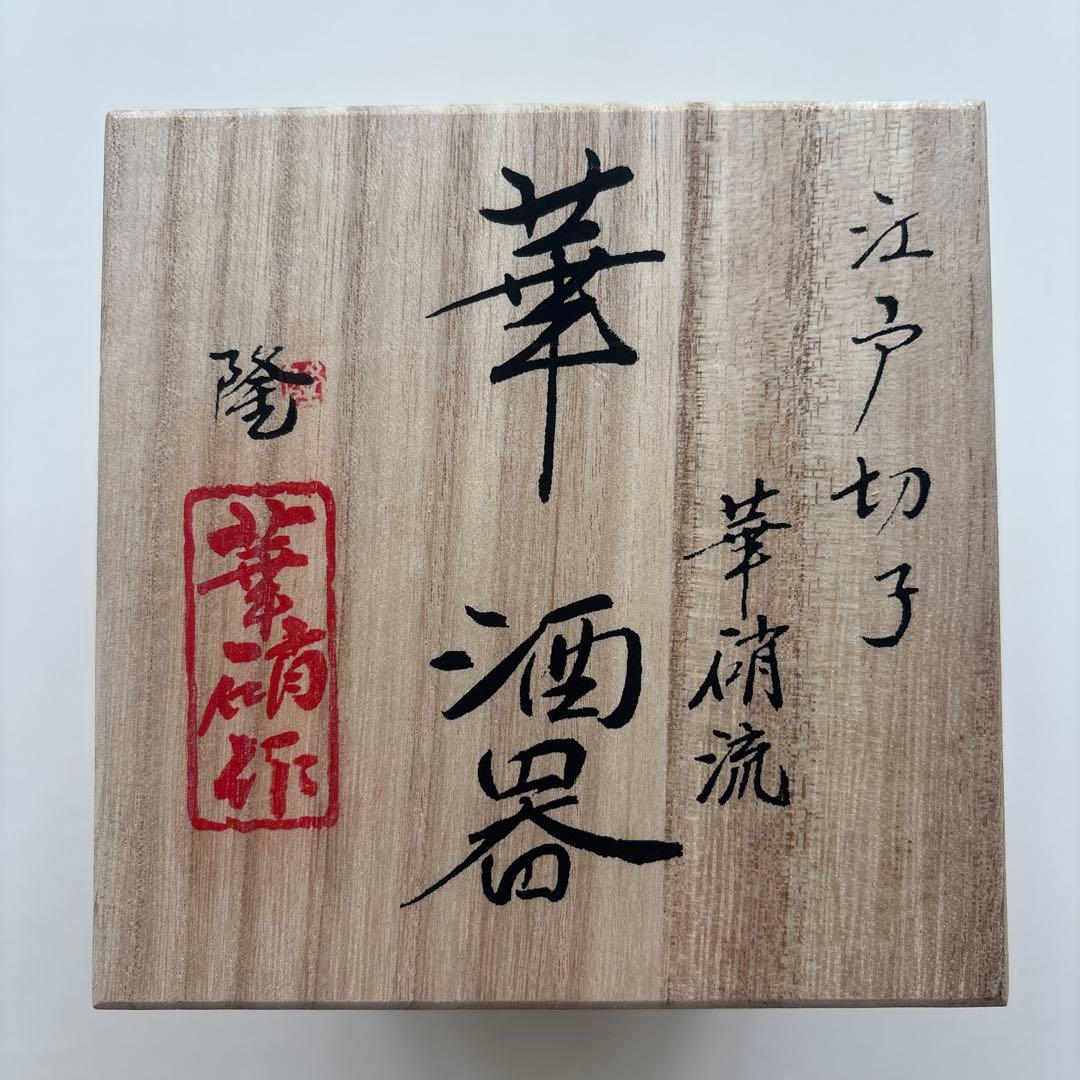 江戸切子
華硝流
華 酒器
隆
華硝作